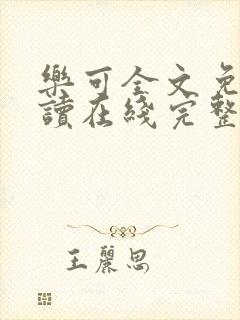 樂可全文免
讀在綫完整
王麗思